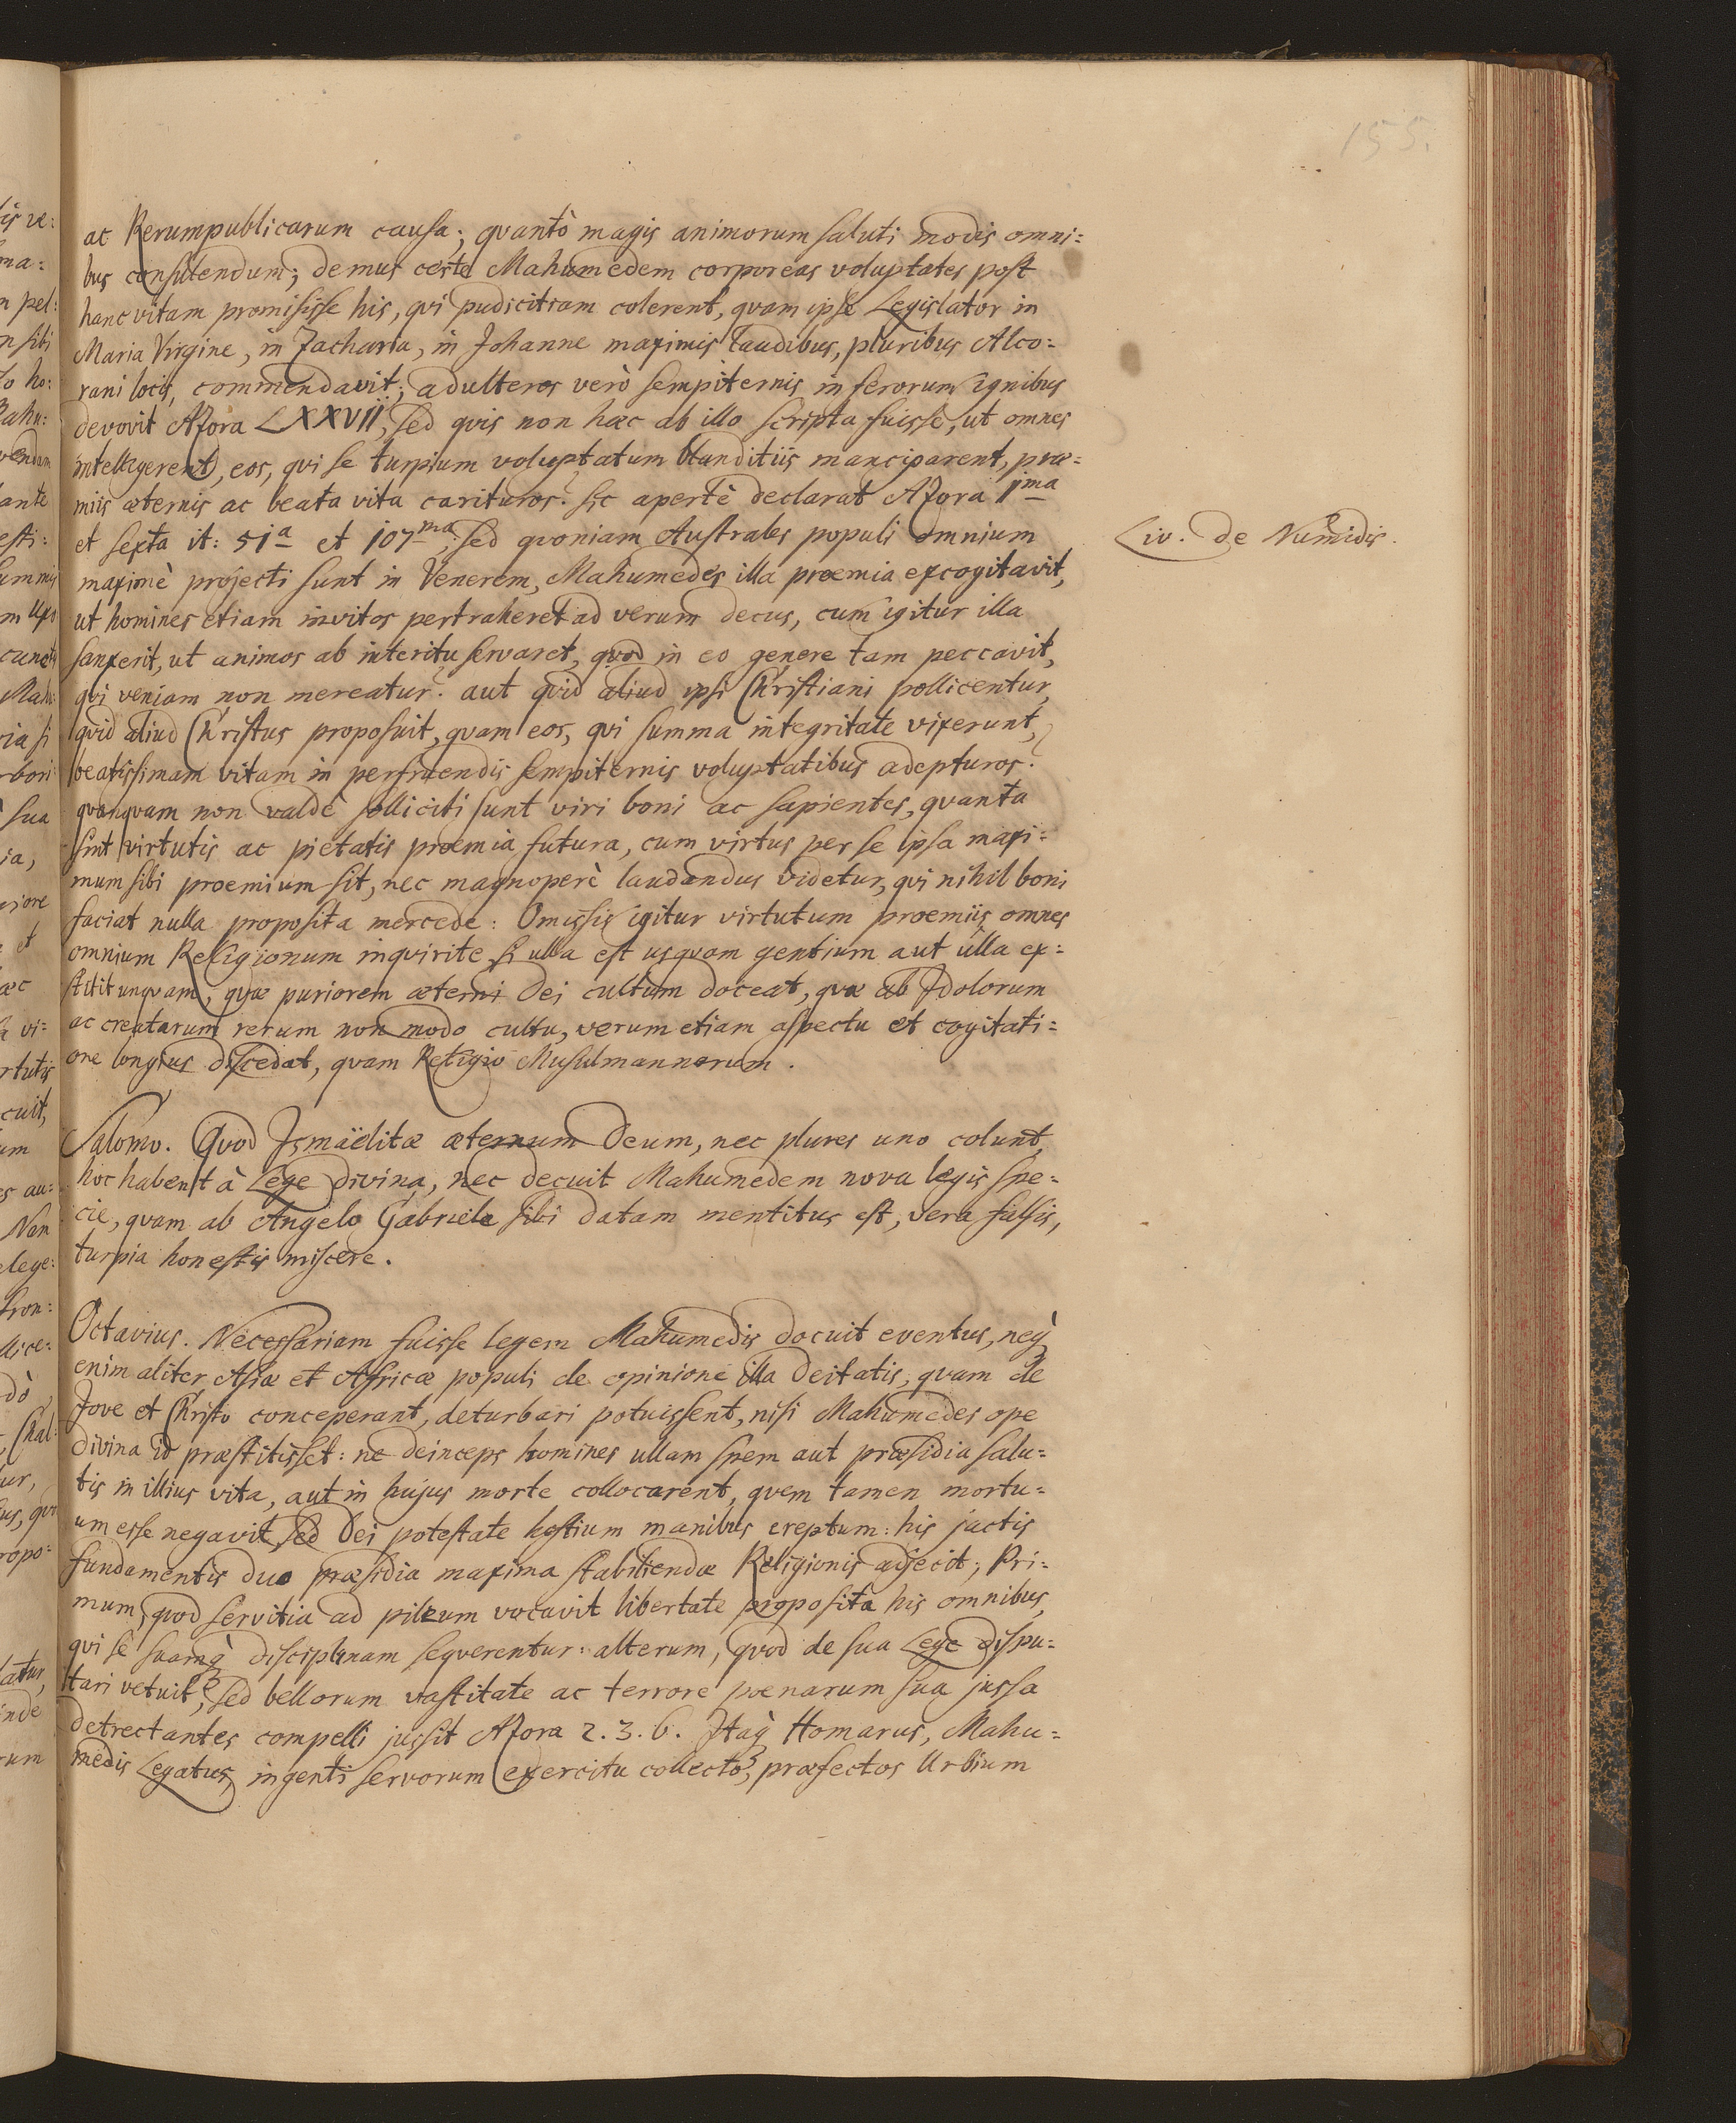 155.
ac Rerumpublicarum causa; qvantò magis animorum saluti modis omni=
bus consulendum; demus certe Mahumedem corporeas voluptates post
hanc vitam promisisse his, qvi pudicitiam colerent, qvam ipse Legislator in
Maria Virgine, in Zacharia, in Johanne maximis laudibus, pluribus Alco=
rani locis, commendavit; adulteros verò sempiternis inferorum ignibus
devovit Azora LXXVII; sed qvis non hæc ab illo scripta fuisse, ut omnes
intelligerent, eos, qvi se turpium voluptatum blanditiis manciparent, præ=
miis æternis ac beata vita carituros? sic apertè declarat Azora 1ma
et sexta it: 51a et 107ma; sed qvoniam Australes populi omnium
maximè projecti sunt in Venerem, Mahumedes illa proemia excogitavit,
ut homines etiam invitos pertraheret ad verum decus, cum igitur illa
sanxerit, ut animos ab interitu servaret, qvod in eo genere tam peccavit,
qvi veniam non mereatur? aut qvid aliud ipsi Christiani pollicentur,
qvid aliud Christus proposuit, qvam eos, qvi summa integritate vixerunt,
beatissimam vitam in perfruendis sempiternis voluptatibus adepturos?
qvanqvam non valdè solliciti sunt viri boni ac sapientes, qvanta
sint virtutis ac pietatis proemia futura, cum virtus per se ipsa maxi=
mum sibi proemium sit, nec magnoperè laudandus videtur, qvi nihil boni
faciat nulla proposita mercede: Omissis igitur virtutum proemiis, omnes
omnium Religionum inqvirite, si ulla est usqvam gentium aut ulla ex=
stitit unqvam, qvæ puriorem æterni Dei cultum doceat, qvæ ab Idolorum
ac creatarum rerum non modo cultu, verum etiam aspectu et cogitati=
one longius discedat, qvam Religio Musulmannorum.
Salomo. Qvod Ismaëlitæ æternum Deum, nec plures uno colunt,
hoc habent à Lege divina, nec decuit Mahumedem nova legis spe=
cie, qvam ab Angelo Gabriele sibi datam mentitus est, vera falsis,
turpia honestis miscere.
Octavius. Necessariam fuisse legem Mahumedis docuit eventus, neq̀
enim aliter Asiæ et Africæ populi de opinione illa Deitatis, qvam de
Jove et Christo conceperant, deturbari potuissent, nisi Mahumedes ope
divina id præstitisset: ne deinceps homines ullam spem aut præsidia salu=
tis in illius vita, aut in hujus morte collocarent, qvem tamen mortu=
um esse negavit, sed Dei potestate hostium manibus ereptum: his jactis
fundamentis duo præsidia maxima stabiliendæ Religionis adjecit; Pri=
mum, qvod servitia ad pileum vocavit libertate proposita his omnibus,
qvi se suamq̀ disciplinam seqverentur: alterum, qvod de sua Lege dispu=
tari vetuit, sed bellorum vastitate ac terrore poenarum sua jussa
detrectantes compelli jussit Azora 2. 3. 6. Itaq̀ Homarus, Mahu=
medis Legatus, ingenti servorum exercitu collecto, præfectos Urbium
Liv. de Numidis.